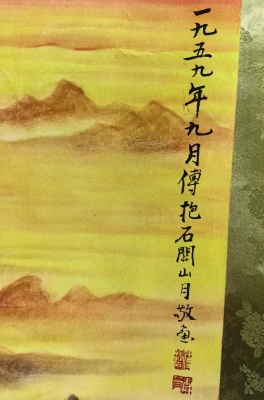 一九五九年九月傅抱石關山月敬畫